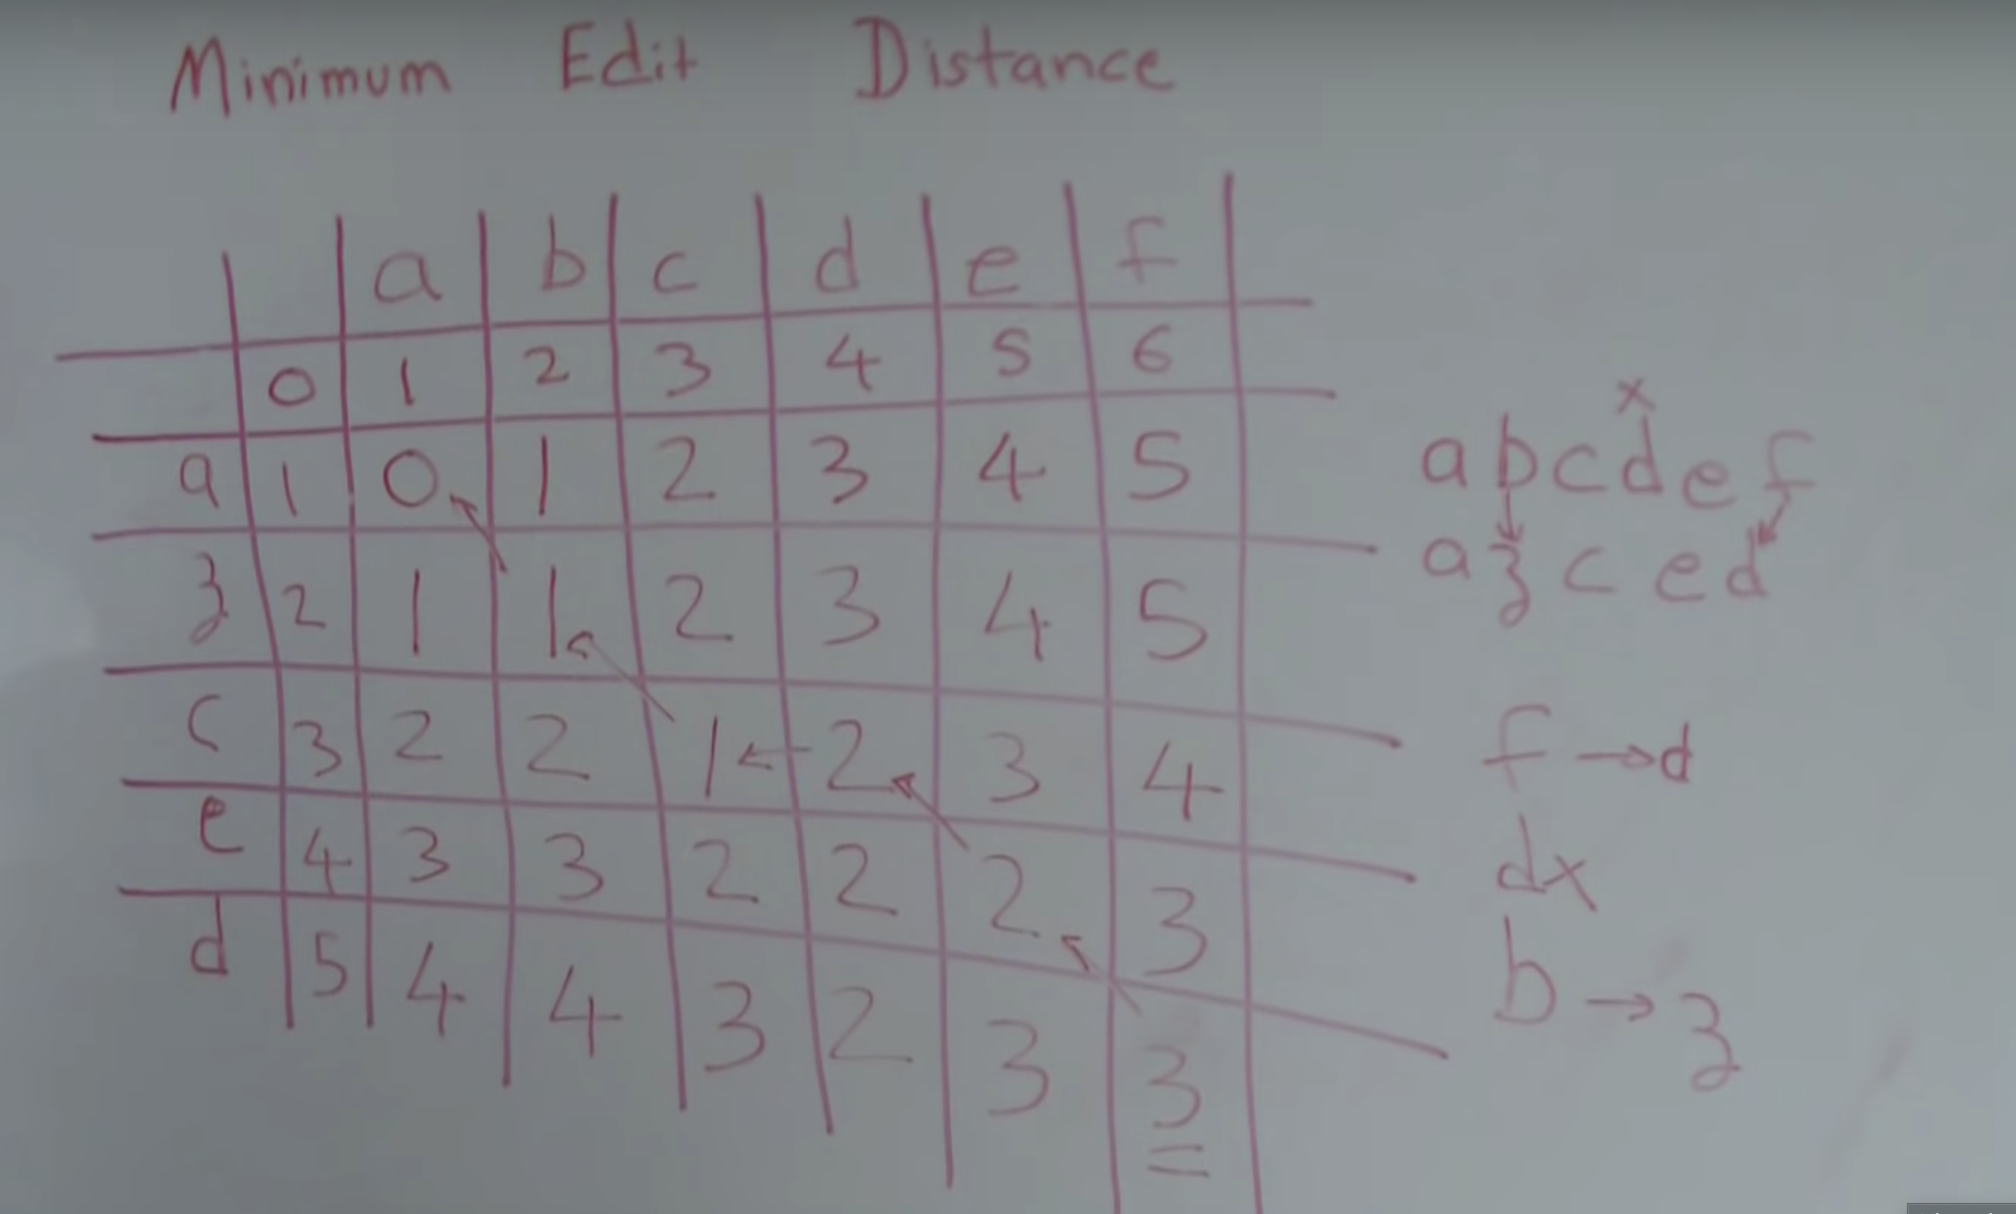 Minimum Edit Distance
a b c d e f
0 1 2 3 4 5 6
a 1 0 1 2 3 4 5
z 2 1 1 2 3 4 5
c 3 2 2 1 2 3 4
e 4 3 3 2 2 2 3
d 5 4 4 3 2 3 3
x
a b c d e f
a z c e d
f → d
d x
b → z